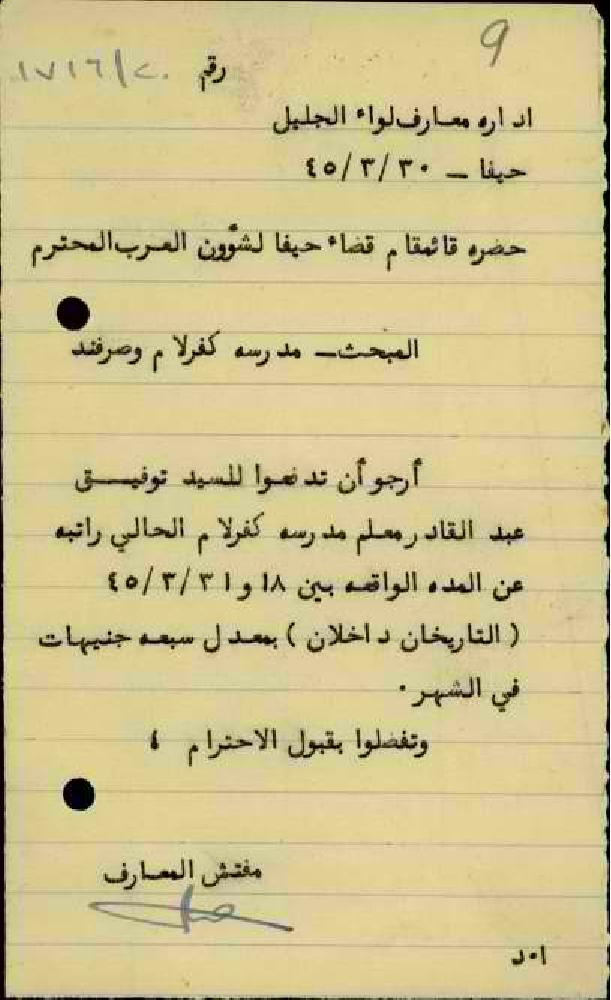 9
رقم ١٧١٦/٢٠
اداره معارف لواء الجليل
حيفا – ٤٥/٣/٣٠
حضره قائمقام قضاء حيفا لشؤون العرب المحترم
المبحث – مدرسه كفرلام وصرفند
أرجو أن تدفعوا للسيد توفيـــق
عبد القادر معلم مدرسه كفرلام الحالي راتبه
عن المده الواقعه بين ١٨ و ٤٥/٣/٣١
( التاريخان داخلان ) بمعدل سبعه جنيهات
في الشهر .
وتفضلوا بقبول الاحترام ،
مفتش المعارف